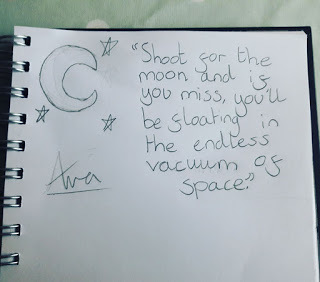 "Shoot for the
moon and if
you miss, you'll
be floating in
the endless
vacuum of
space."
Ava